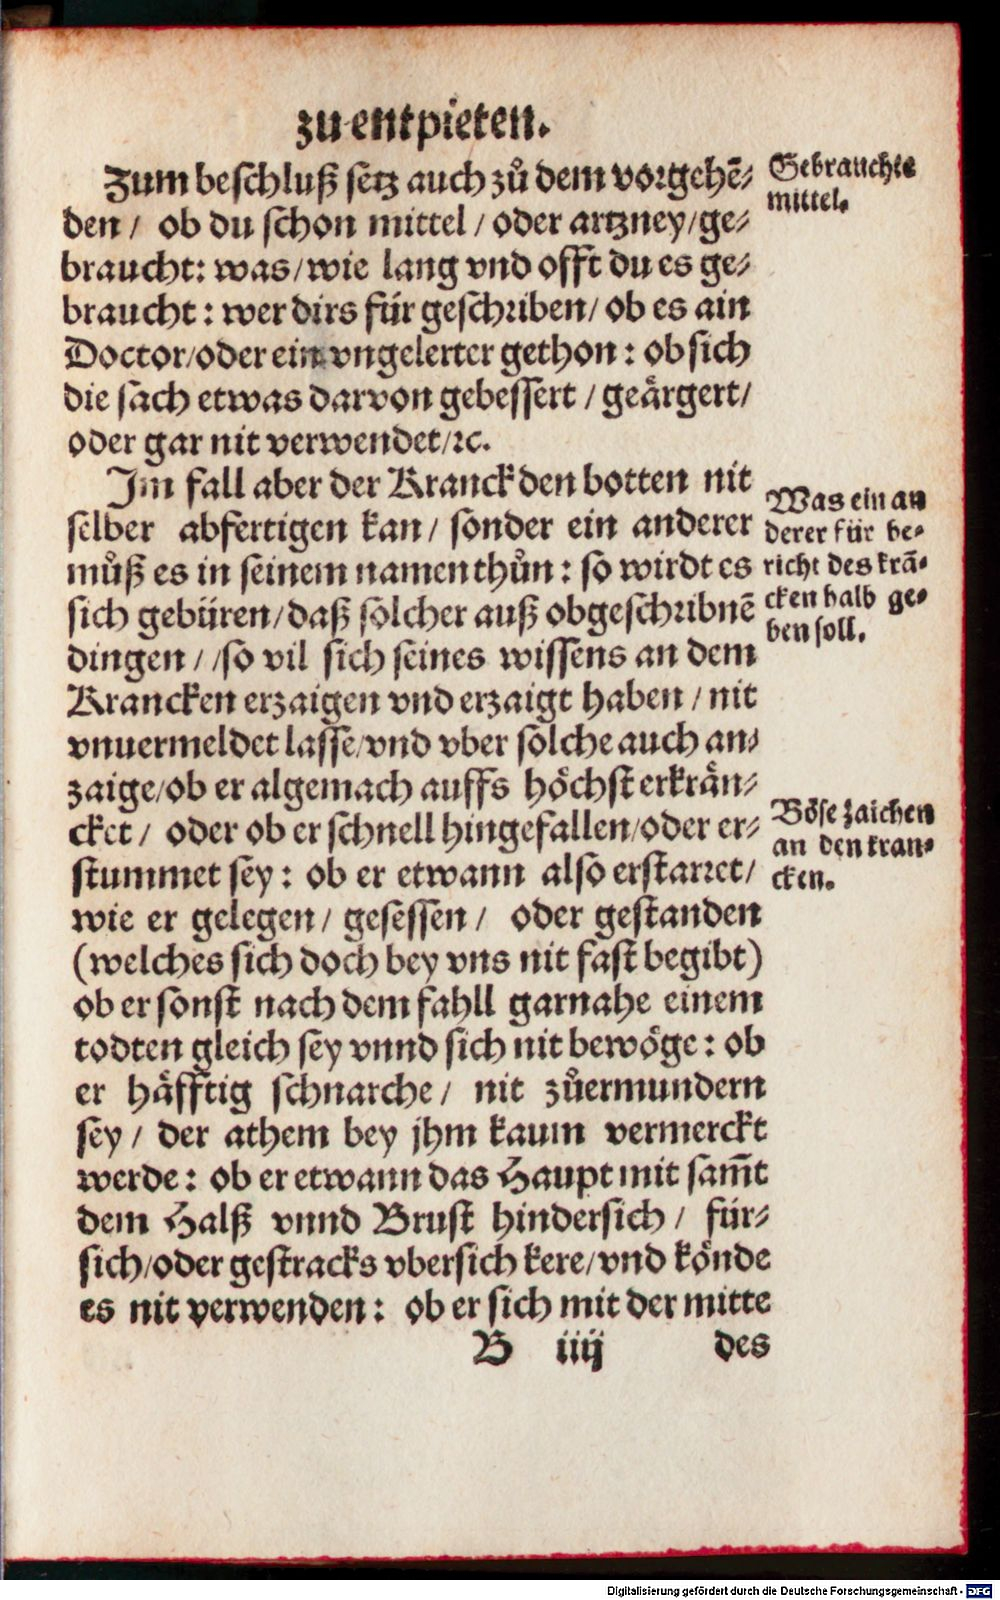 zu entpieten.
Zum beschluß setz auch zů dem vorgehẽ⸗
den / ob du schon mittel / oder artzney / ge⸗
braucht: was / wie lang vnd offt du es ge⸗
braucht: wer dirs für geschriben / ob es ain
Doctor / oder ein vngelerter gethon: ob sich
die sach etwas darvon gebessert / geärgert /
oder gar nit verwendet / ꝛc.
Gebrauchte
mittel.
Im fall aber der Kranck den botten nit
selber abfertigen kan / sonder ein anderer
můß es in seinem namen thůn: so wirdt es
sich gebüren / daß solcher auß obgeschribnẽ
dingen / / so vil sich seines wissens an dem
Krancken erzaigen vnd erzaigt haben / nit
vnuermeldet lasse / vnd vber solche auch an⸗
zaige / ob er algemach auffs höchst erkrän⸗
cket / oder ob er schnell hingefallen / oder er⸗
stummet sey: ob er etwann also erstarret /
wie er gelegen / gesessen / oder gestanden
(welches sich doch bey vns nit fast begibt)
ob er sonst nach dem fahll garnahe einem
todten gleich sey vnnd sich nit bewöge: ob
er häfftig schnarche / nit zůermundern
sey / der athem bey jhm kaum vermerckt
werde: ob er etwann das Haupt mit sam̃t
dem Halß vnnd Brust hindersich / für⸗
sich / oder gestracks vbersich kere / vnd könde
es nit verwenden: ob er sich mit der mitte
Was ein an
derer für be⸗
richt des krã⸗
cken halb ge⸗
ben soll.
Böse zaichen
an den kran⸗
cken.
B iiij des
Digitalisierung gefördert durch die Deutsche Forschungsgemeinschaft - DFG